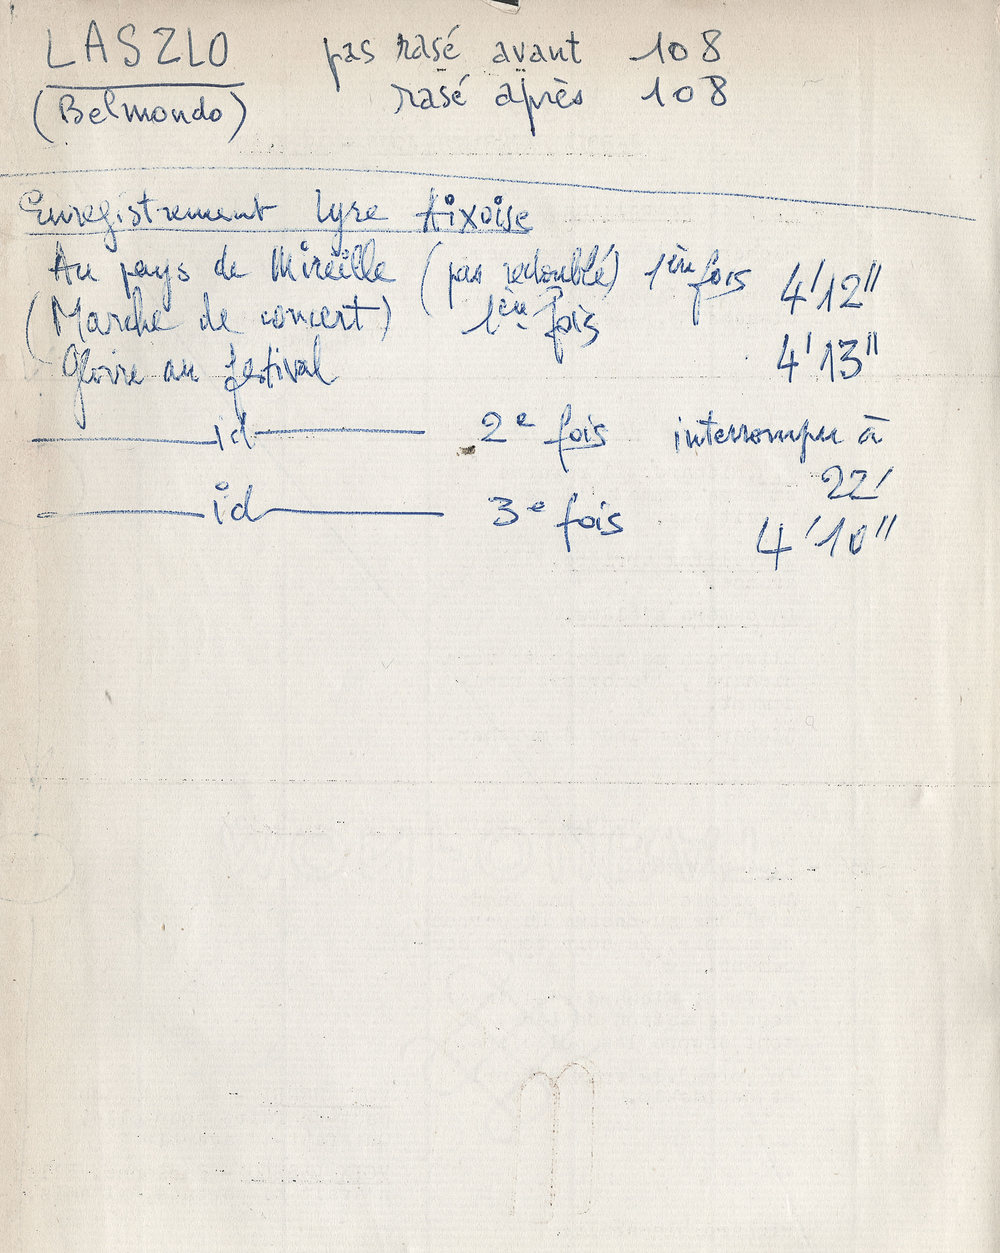 LASZLO pas rasé avant 108
(Belmondo) rasé après 108
Enregistrement Lyre Aixoise
Au pays de Mireille (pas redoublé) 1ère fois 4'12"
(Marche de concert) 1ère fois
4'13"
Gloire au festival
id 2e fois interrompu à
22'
id 3e fois
4'10"